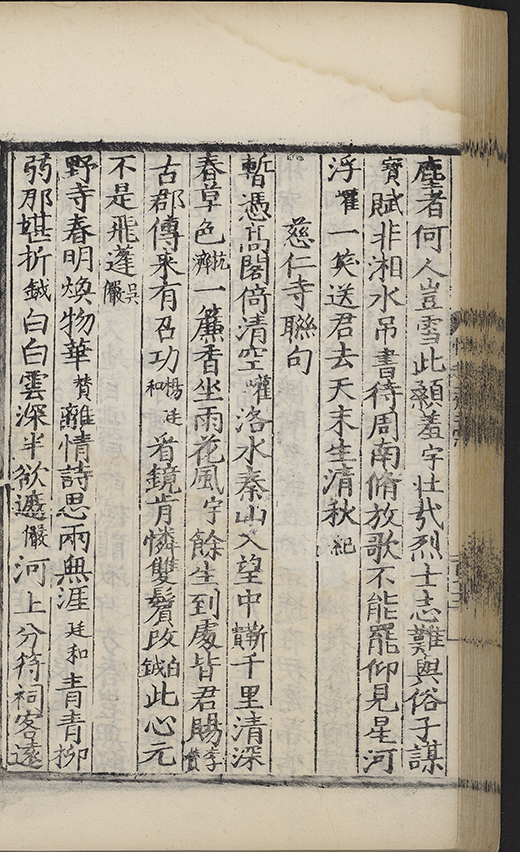 塵者何人豈雪此顏羞宇壯哉烈士志難與俗子謀
寶賦非湘水吊書待周南脩放歌不能罷仰見星河
浮瓘一笑送君去天末生清秋紀
慈仁寺聯句
暫憑高閣倚清空瓘洛水秦山入望中蘄賁千里清深
春草色杭濟一簾香坐雨花風宇餘生到處皆君賜李贊
古郡傳來有召功楊廷和看鏡肯憐雙鬢改白鉞此心元
不是飛蓬吳儼
野寺春明煥物華贊離情詩思兩無涯廷和青青柳
弱那堪折鉞白白雲深半欲遮儼河上分符祠客遠